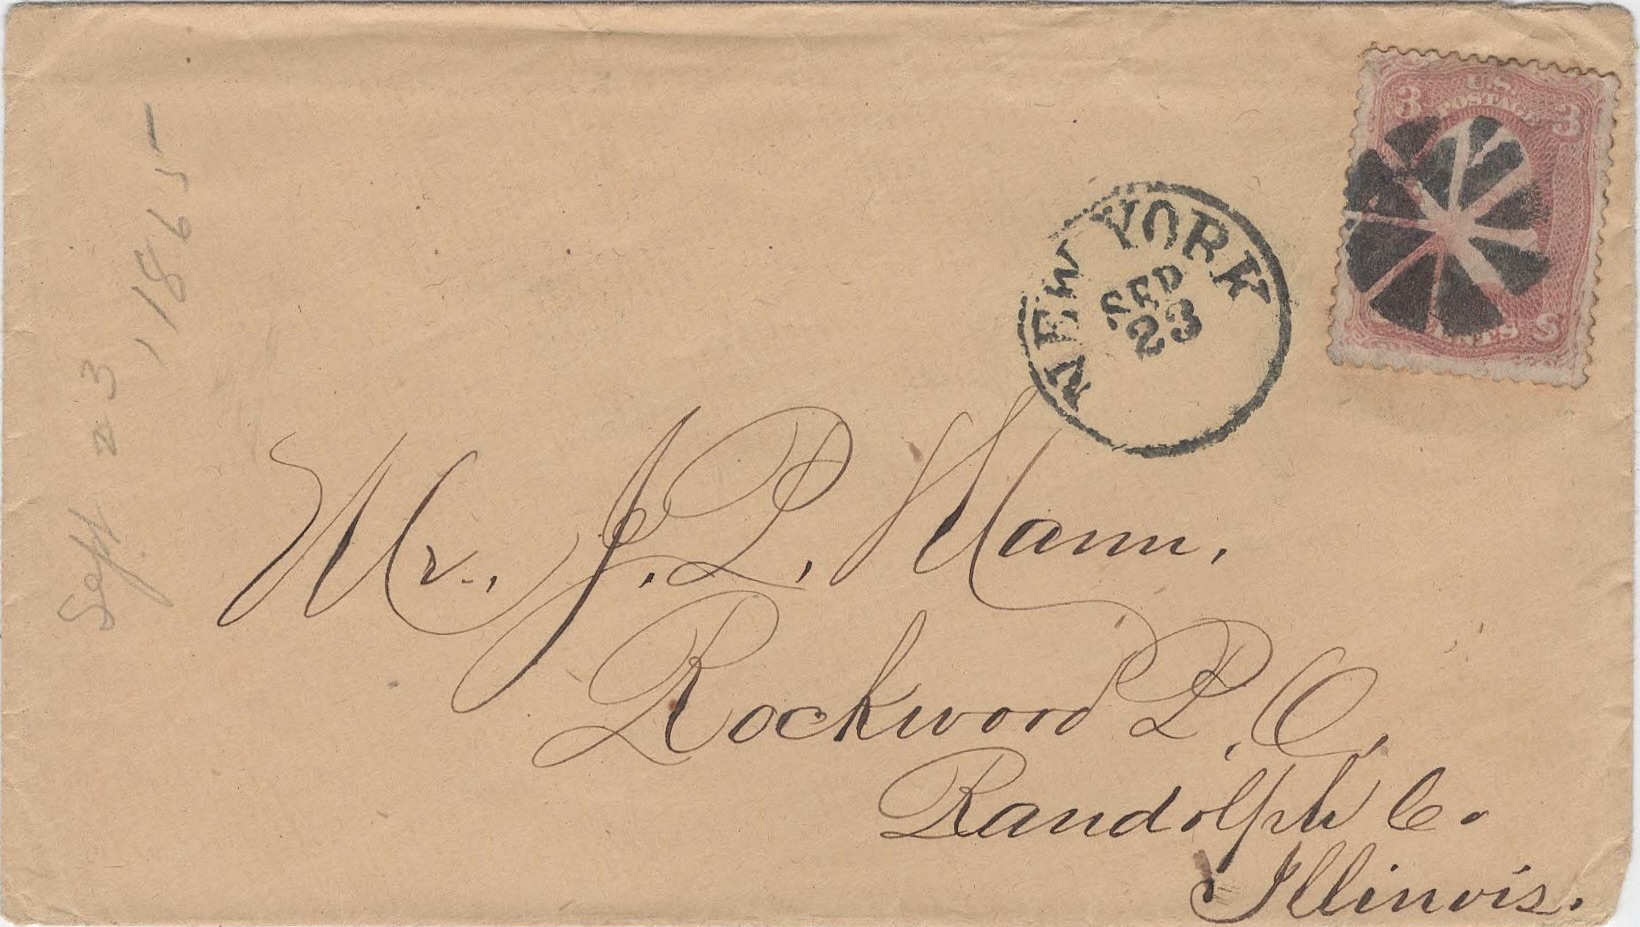 Sept 23, 1865
3 U.S. 3
POSTAGE
NEW YORK
SEP
23
Mr. J. P. Mann,
Rockwood P. O.
Randolph Co.
Illinois.